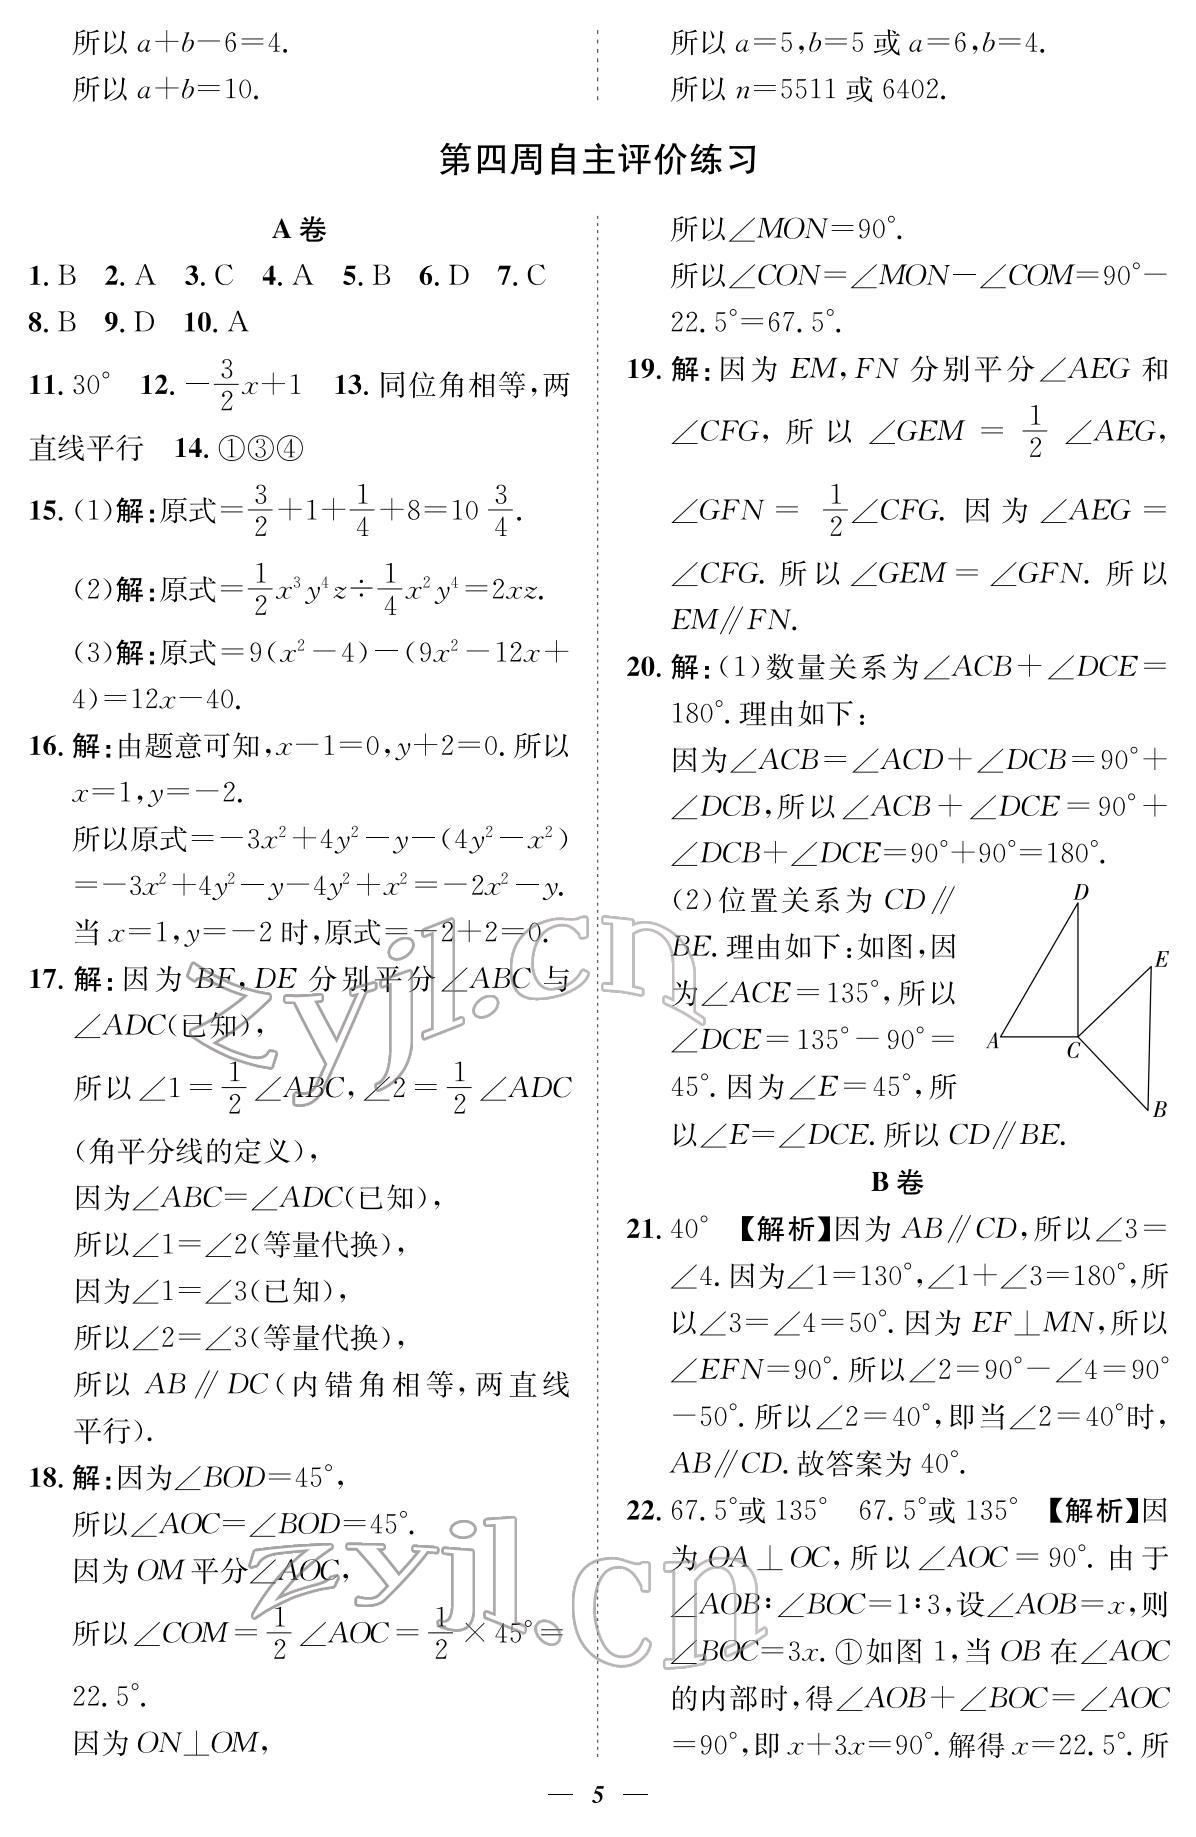 所以 a+b−6=4.
所以 a+b=10.
所以 a=5,b=5 或 a=6,b=4.
所以 n=5511 或 6402.
第四周自主评价练习
A 卷
1. B 2. A 3. C 4. A 5. B 6. D 7. C
8. B 9. D 10. A
11. 30° 12. −3/2x+1 13. 同位角相等,两
直线平行 14. ①③④
15. (1)解:原式=3/2+1+1/4+8=10 3/4.
(2)解:原式=1/2x³y⁴z÷1/4x²y⁴=2xz.
(3)解:原式=9(x²−4)−(9x²−12x+
4)=12x−40.
16. 解:由题意可知,x−1=0,y+2=0. 所以
x=1,y=−2.
所以原式=−3x²+4y²−y−(4y²−x²)
=−3x²+4y²−y−4y²+x²=−2x²−y.
当 x=1,y=−2 时,原式=−2+2=0.
17. 解:因为 BF,DE 分别平分∠ABC 与
∠ADC(已知),
所以∠1=1/2∠ABC,∠2=1/2∠ADC
(角平分线的定义),
因为∠ABC=∠ADC(已知),
所以∠1=∠2(等量代换),
因为∠1=∠3(已知),
所以∠2=∠3(等量代换),
所以 AB∥DC(内错角相等,两直线
平行).
18. 解:因为∠BOD=45°,
所以∠AOC=∠BOD=45°.
因为 OM 平分∠AOC,
所以∠COM=1/2∠AOC=1/2×45°=
22.5°.
因为 ON⊥OM,
所以∠MON=90°.
所以∠CON=∠MON−∠COM=90°−
22.5°=67.5°.
19. 解:因为 EM,FN 分别平分∠AEG 和
∠CFG, 所以 ∠GEM = 1/2 ∠AEG,
∠GFN = 1/2∠CFG. 因为∠AEG =
∠CFG. 所以∠GEM=∠GFN. 所以
EM∥FN.
20. 解:(1)数量关系为∠ACB+∠DCE=
180°.理由如下:
因为∠ACB=∠ACD+∠DCB=90°+
∠DCB,所以∠ACB+∠DCE=90°+
∠DCB+∠DCE=90°+90°=180°.
(2)位置关系为 CD∥
BE.理由如下:如图,因
为∠ACE=135°,所以
∠DCE=135°−90°=
45°.因为∠E=45°,所
以∠E=∠DCE.所以 CD∥BE.
D
E
A
C
B
B 卷
21. 40° 【解析】因为 AB∥CD,所以∠3=
∠4.因为∠1=130°,∠1+∠3=180°,所
以∠3=∠4=50°.因为 EF⊥MN,所以
∠EFN=90°.所以∠2=90°−∠4=90°
−50°.所以∠2=40°,即当∠2=40°时,
AB∥CD.故答案为 40°.
22. 67.5°或 135° 67.5°或 135° 【解析】因
为 OA⊥OC,所以∠AOC=90°.由于
∠AOB:∠BOC=1:3,设∠AOB=x,则
∠BOC=3x.①如图 1,当 OB 在∠AOC
的内部时,得∠AOB+∠BOC=∠AOC
=90°,即 x+3x=90°.解得 x=22.5°.所
— 5 —
zyjl.cn
zyjl.cn